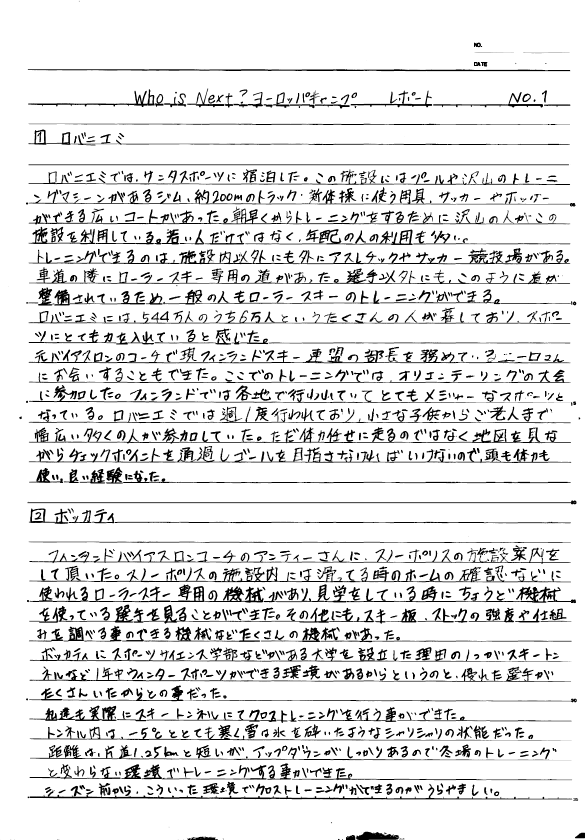 NO.
DATE
Who is Next? ヨーロッパキャンプ レポート NO.1
1 ロバニエミ
ロバニエミでは、サンタスポーツに宿泊した。この施設にはプールや沢山のトレーニ
ングマシーンがあるジム、約200mのトラック・新体操に使う用具、サッカーやホッケー
ができる広いコートがあった。朝早くからトレーニングをするために沢山の人がこの
施設を利用している。若い人だけではなく、年配の人の利用も多い。
トレーニングできるのは、施設内以外にも外にアスレチックやサッカー競技場がある。
車道の隣にローラースキー専用の道があった。選手以外にも、このように道が
整備されているため、一般の人もローラースキーのトレーニングができる。
ロバニエミには、544万人のうち6万人というたくさんの人が暮しており、スポー
ツにとても力を入れていると感じた。
元バイアスロンのコーチで現フィンランドスキー連盟の部長を務めているニーロさん
にお会いすることもできた。ここでのトレーニングでは、オリエンテーリングの大会
に参加した。フィンランドでは各地で行われていてとてもメジャーなスポーツと
なっている。ロバニエミでは週1度行われており、小さな子供からご老人まで
幅広い多くの人が参加していた。ただ体力任せに走るのではなく地図を見な
がらチェックポイントを通過しゴールを目指さなければいけないので、頭も体力も
使い、良い経験になった。
2 ボッカティ
フィンランドバイアスロンコーチのアンティーさんに、スノーポリスの施設案内を
して頂いた。スノーポリスの施設内には滑ってる時のホームの確認などに
使われるローラースキー専用の機械があり、見学をしている時にちょうど機械
を使っている選手を見ることができた。その他にも、スキー板、ストックの強度や仕組
みを調べる事のできる機械などたくさんの機械があった。
ボッカティにスポーツサイエンス学部などがある大学を設立した理由の1つがスキートン
ネルなど1年中ウィンタースポーツができる環境があるからというのと、優れた選手が
たくさんいたからとの事だった。
私達も実際にスキートンネルにてクロストレーニングを行う事ができた。
トンネル内は、-5℃ととても寒く、雪は氷を砕いたようなシャリシャリの状態だった。
距離は、片道1.25kmと短いが、アップダウンがしっかりあるので冬場のトレーニング
と変わらない環境でトレーニングする事ができた。
シーズン前から、こういった環境でクロストレーニングができるのがうらやましい。